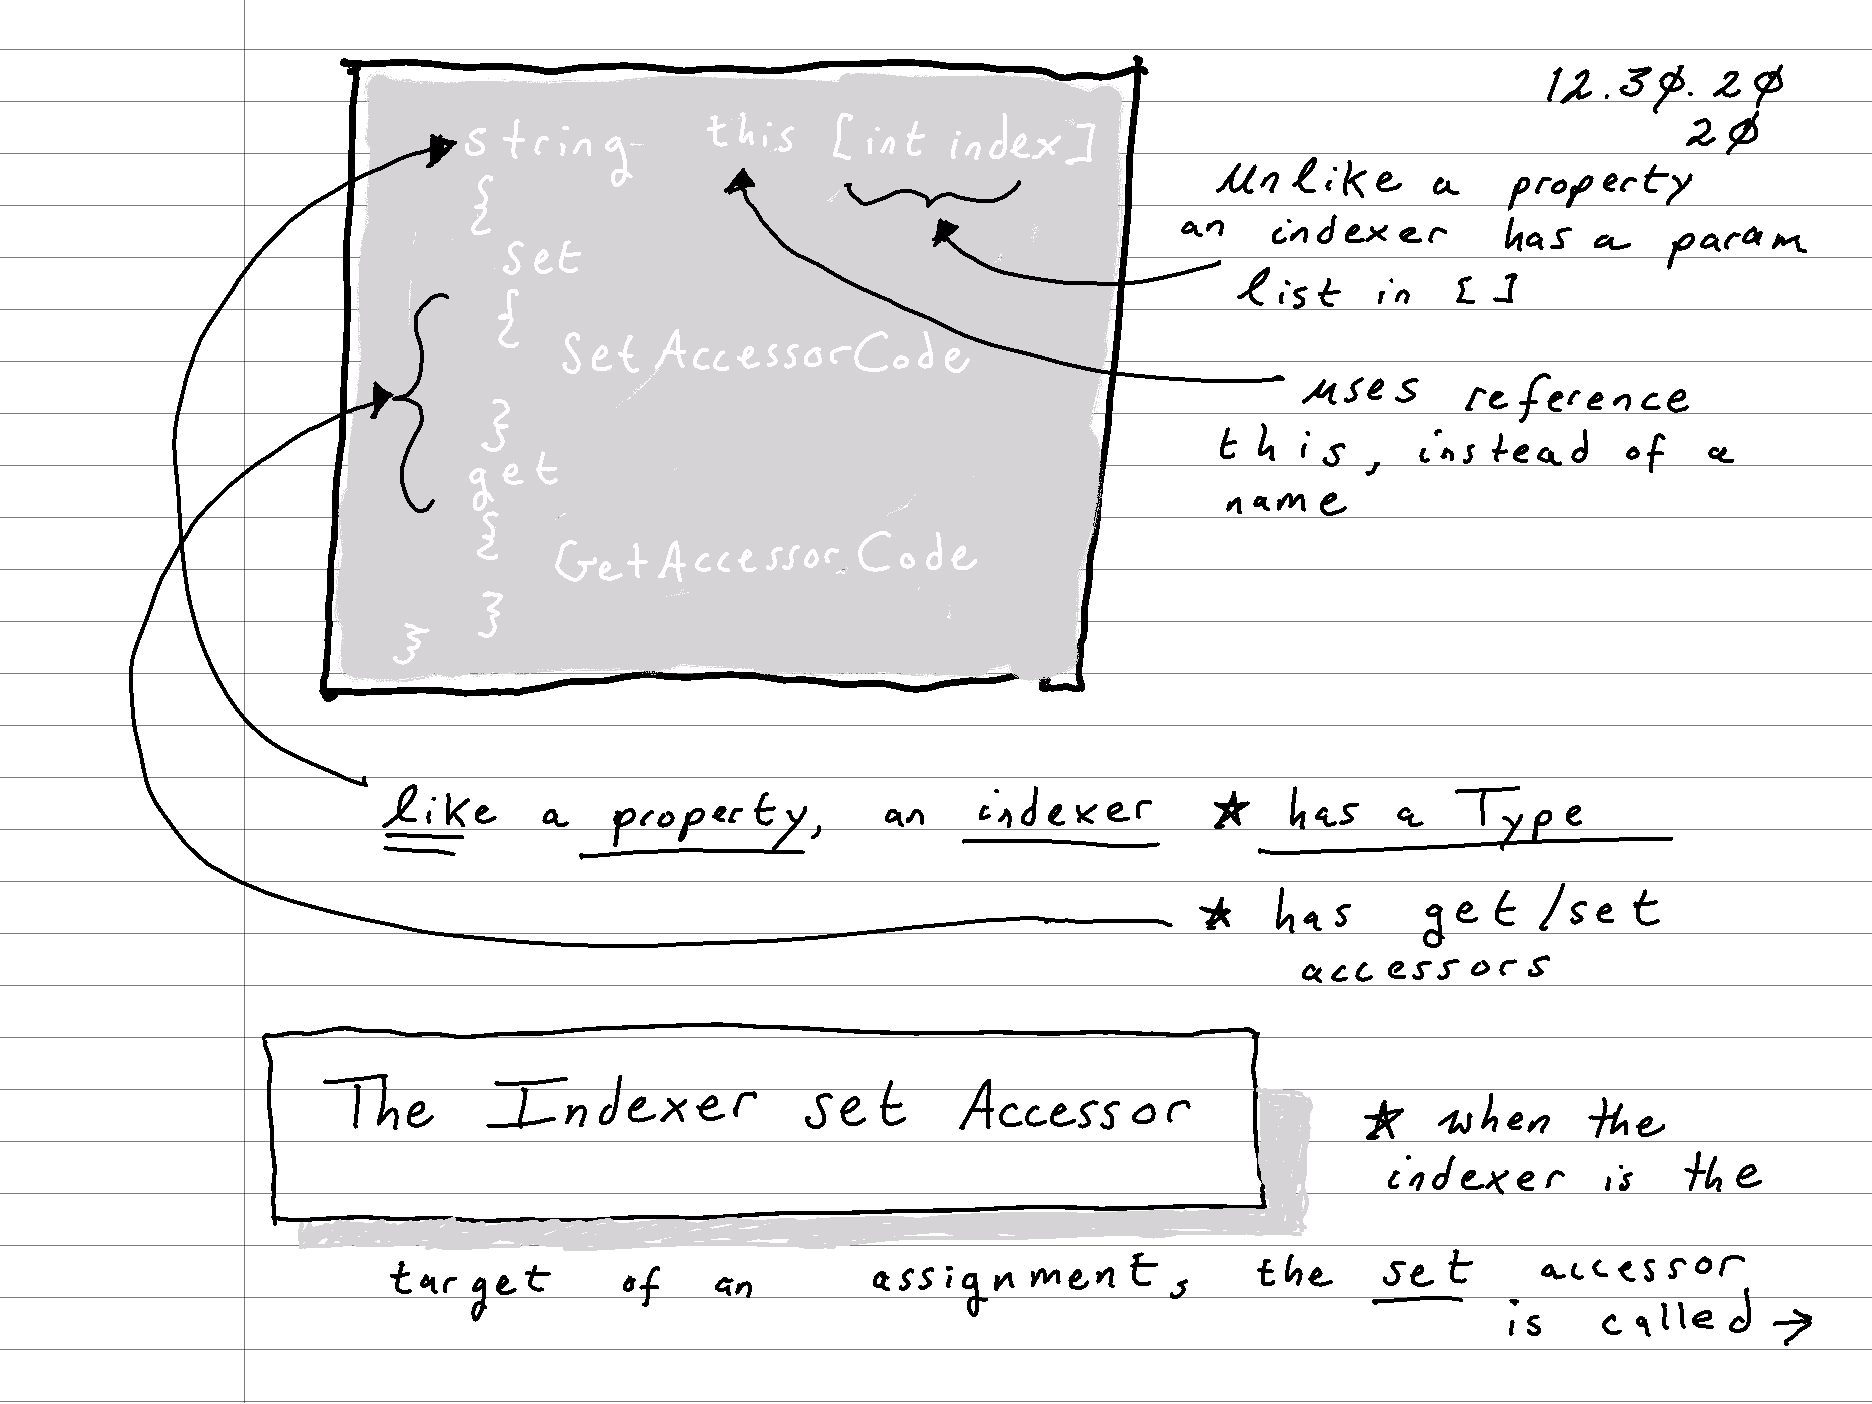 12.3Ø.2Ø
2Ø
string this [int index]
{
set
{
SetAccessorCode
}
get
{
GetAccessorCode
}
}
Unlike a property
an indexer has a param
list in []
uses reference
this, instead of a
name
like a property, an indexer ★ has a Type
★ has get/set
accessors
The Indexer set Accessor
★ when the
indexer is the
target of an assignment, the set accessor
is called →